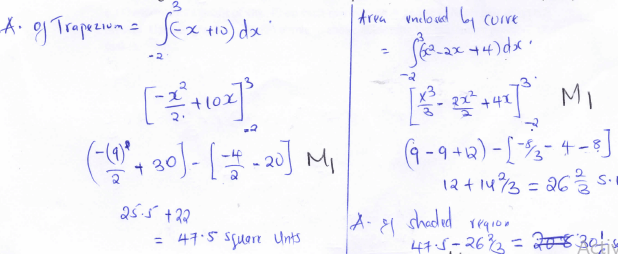 A. of Trapezium = ∫₋₂³ (-x + 10) dx
[-x²/2 + 10x]³₋₂
(-(9)/2 + 30) - [-4/2 - 20] M1
25.5 + 22
= 47.5 square Unts
Area enclosed by curve
= ∫₋₂³ (x² - 2x + 4) dx
[x³/3 - 2x²/2 + 4x]³₋₂ M1
(9 - 9 + 12) - [-8/3 - 4 - 8]
12 + 14 2/3 = 26 2/3 s.
A. of shaded region
47.5 - 26 2/3 =